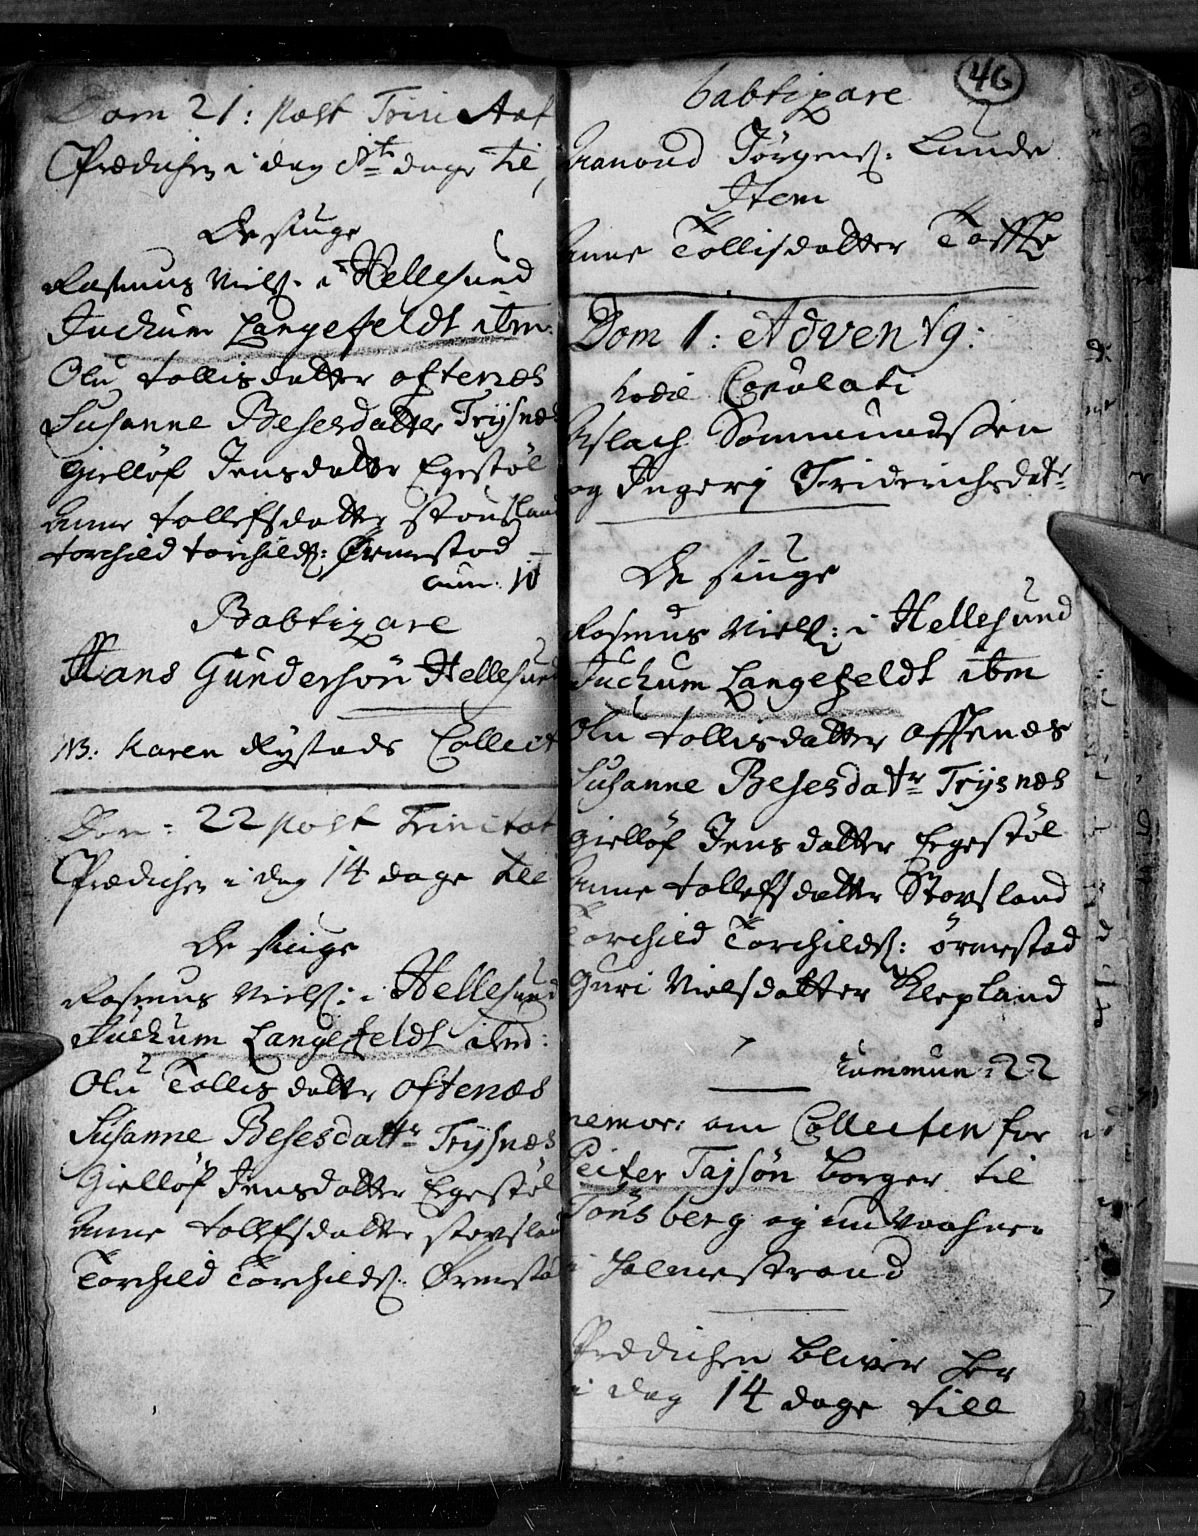 Dom 21: post Trini Aft
Prædichen i dag 8te dage til
De siuge
Rasmus Niels: i Hellesund
Juchum Langefeldt itm:
Olu tollisdatter oftenæs
Susanne Besesdatter Trysnæs
Giellöf Jensdatter Egestöl
Anne tollefsdatter Stousland
torchild torchilds: Ørmestad
Babtizare
Hans Gundersön Hellesund
NB: Karen Rystads Collect
Dom: 22 post Trinitat
Prædichen i dag 14 dage till
De siuge
Rasmus Niels: i Hellesund
Juchum Langefeldt itmd:
Olu Tollis datter oftenæs
Susanne Besesdattr Trysnæs
Giellöf Jensdatter Egestöl
Anne tollefsdatter stovsland
Torchild Torchilds: Ørmestad
46
babtizare
Jörgens: Lunde
Item
Anne Tollisdatter
Dom 1: Advent9:
hodie Copulati
Aslach Sammundssen
og Ingerj Friderichsdatr
De siuge
Rasmus Niels: i Hellesund
Juchum Langefeldt itm
Olu tollisdatter offtenæs
Susanne Besesdatr Trysnæs
Giellöf Jens datter Egestöl
Anne tollefsdatter Stovsland
Torchild Torchilds: örmestad
Guri Nielsdatter Klepland
Commun: 22
memor: om Collecten for
Peiter Tajsön borger til
Tönsberg og
i Holmestrand
Prædichen bliver her
i dag 14 dage till